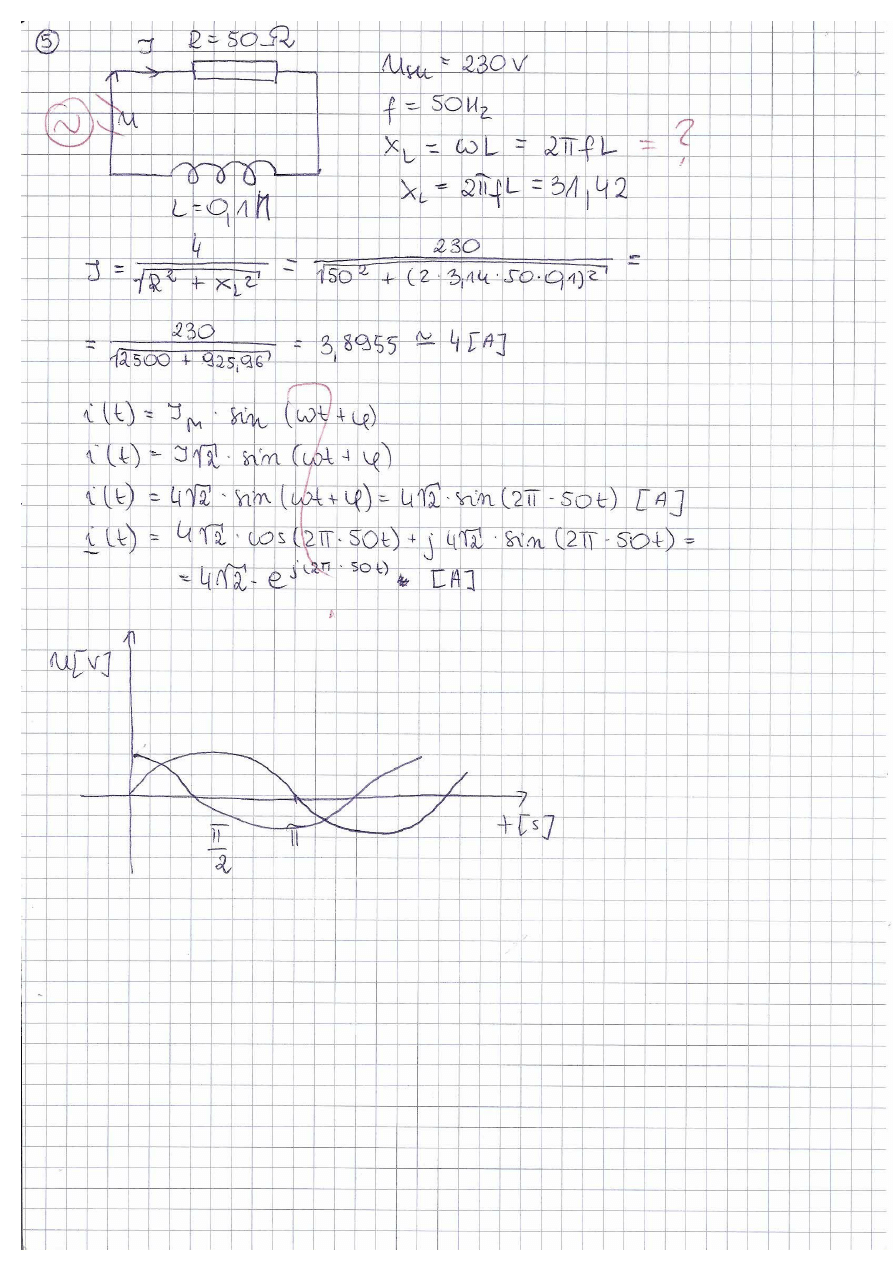 5
I R = 50Ω
U_sk = 230V
~ U
f = 50Hz
X_L = ωL = 2πfL = ?
X_L = 2πfL = 31,42
L = 0,1H
I = U / √(R² + X_L²) = 230 / √(50² + (2·3,14·50·0,1)²) =
= 230 / √(2500 + 925,96) = 3,8955 ≃ 4 [A]
i(t) = I_M · sin (ωt + φ)
i(t) = I√2 · sin (ωt + φ)
i(t) = 4√2 · sin (ωt + φ) = 4√2 · sin (2π · 50t) [A]
i(t) = 4√2 · cos (2π · 50t) + j 4√2 · sin (2π · 50t) =
= 4√2 · e^j(2π · 50t) [A]
U[V]
π/2 π
t[s]